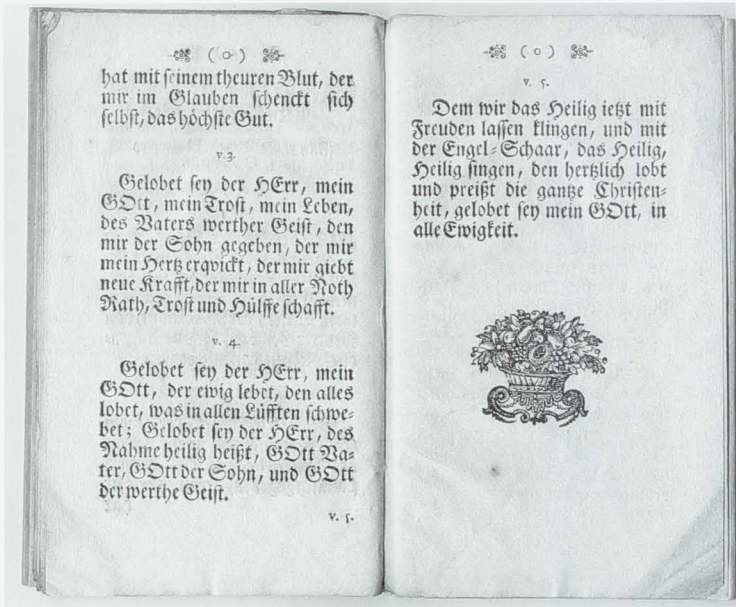 ( o )
hat mit seinem theuren Blut, der
mir im Glauben schenckt sich
selbst, das höchste Gut.
v. 3.
Gelobet sey der HErr, mein
GOtt, mein Trost, mein Leben,
des Vaters werther Geist, den
mir der Sohn gegeben, der mir
mein Hertz erqvickt, der mir giebt
neue Krafft, der mir in aller Noth
Rath, Trost und Hülffe schafft.
v. 4.
Gelobet sey der HErr, mein
GOtt, der ewig lebet, den alles
lobet, was in allen Lüfften schwe-
bet; Gelobet sey der HErr, des
Nahme heilig heißt, GOtt Va-
ter, GOtt der Sohn, und GOtt
der werthe Geist.
v. 5.
( o )
v. 5.
Dem wir das Heilig ietzt mit
Freuden lassen klingen, und mit
der Engel-Schaar, das Heilig,
Heilig singen, den hertzlich lobt
und preißt die gantze Christen-
heit, gelobet sey mein GOtt, in
alle Ewigkeit.